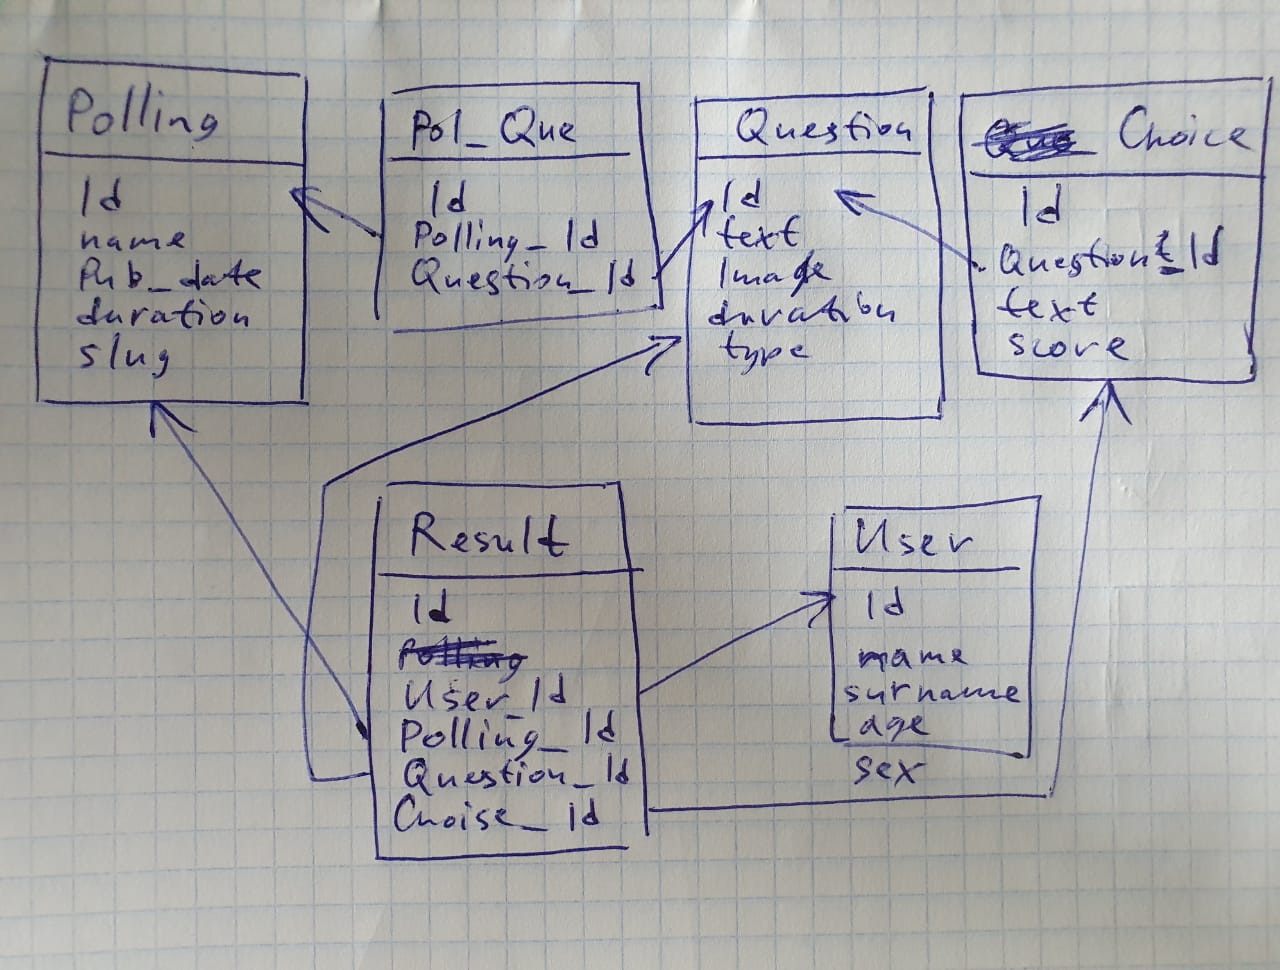 Polling
Id
name
Pub_date
duration
slug
Pol_Que
Id
Polling_Id
Question_Id
Question
Id
text
Image
duration
type
Choice
Id
Question_Id
text
score
Result
Id
User_Id
Polling_Id
Question_Id
Choise_Id
User
Id
name
surname
age
sex